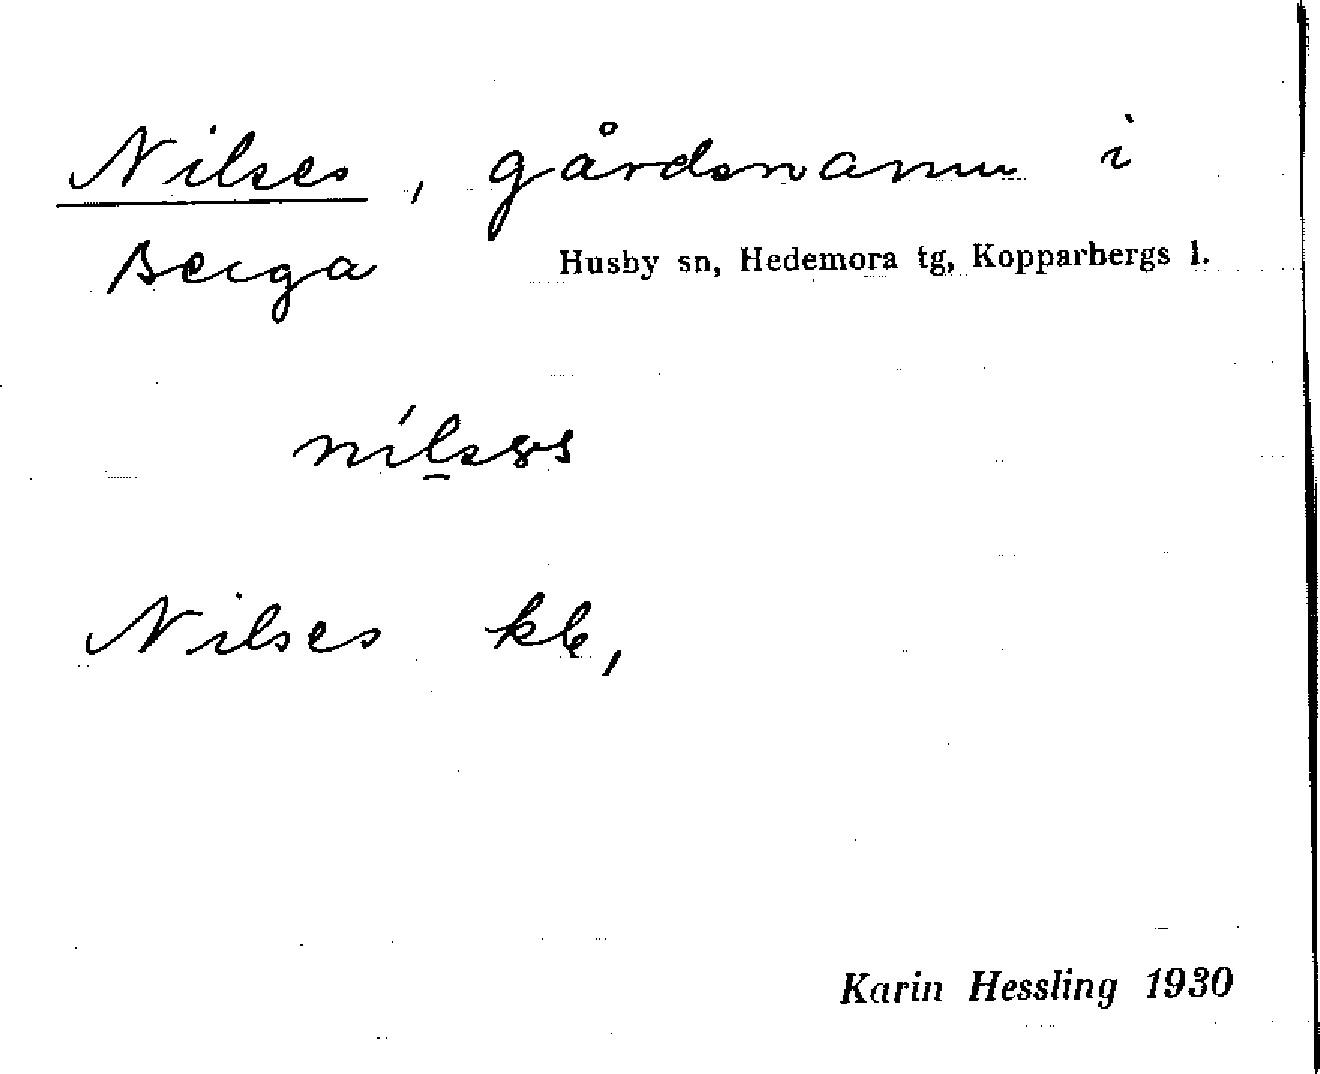 Nilses, gårdsnamn i
Berga Husby sn, Hedemora tg, Kopparbergs l.
Nilses
Karin Hessling 1930